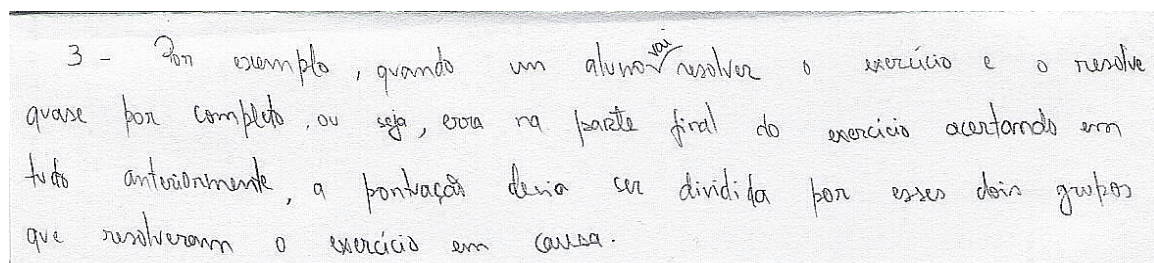 3 - Por exemplo, quando um aluno vai resolver o exercício e o resolve
quase por completo, ou seja, erra na parte final do exercício acertando em
tudo anteriormente, a pontuação devia ser dividida por esses dois grupos
que resolveram o exercício em causa.